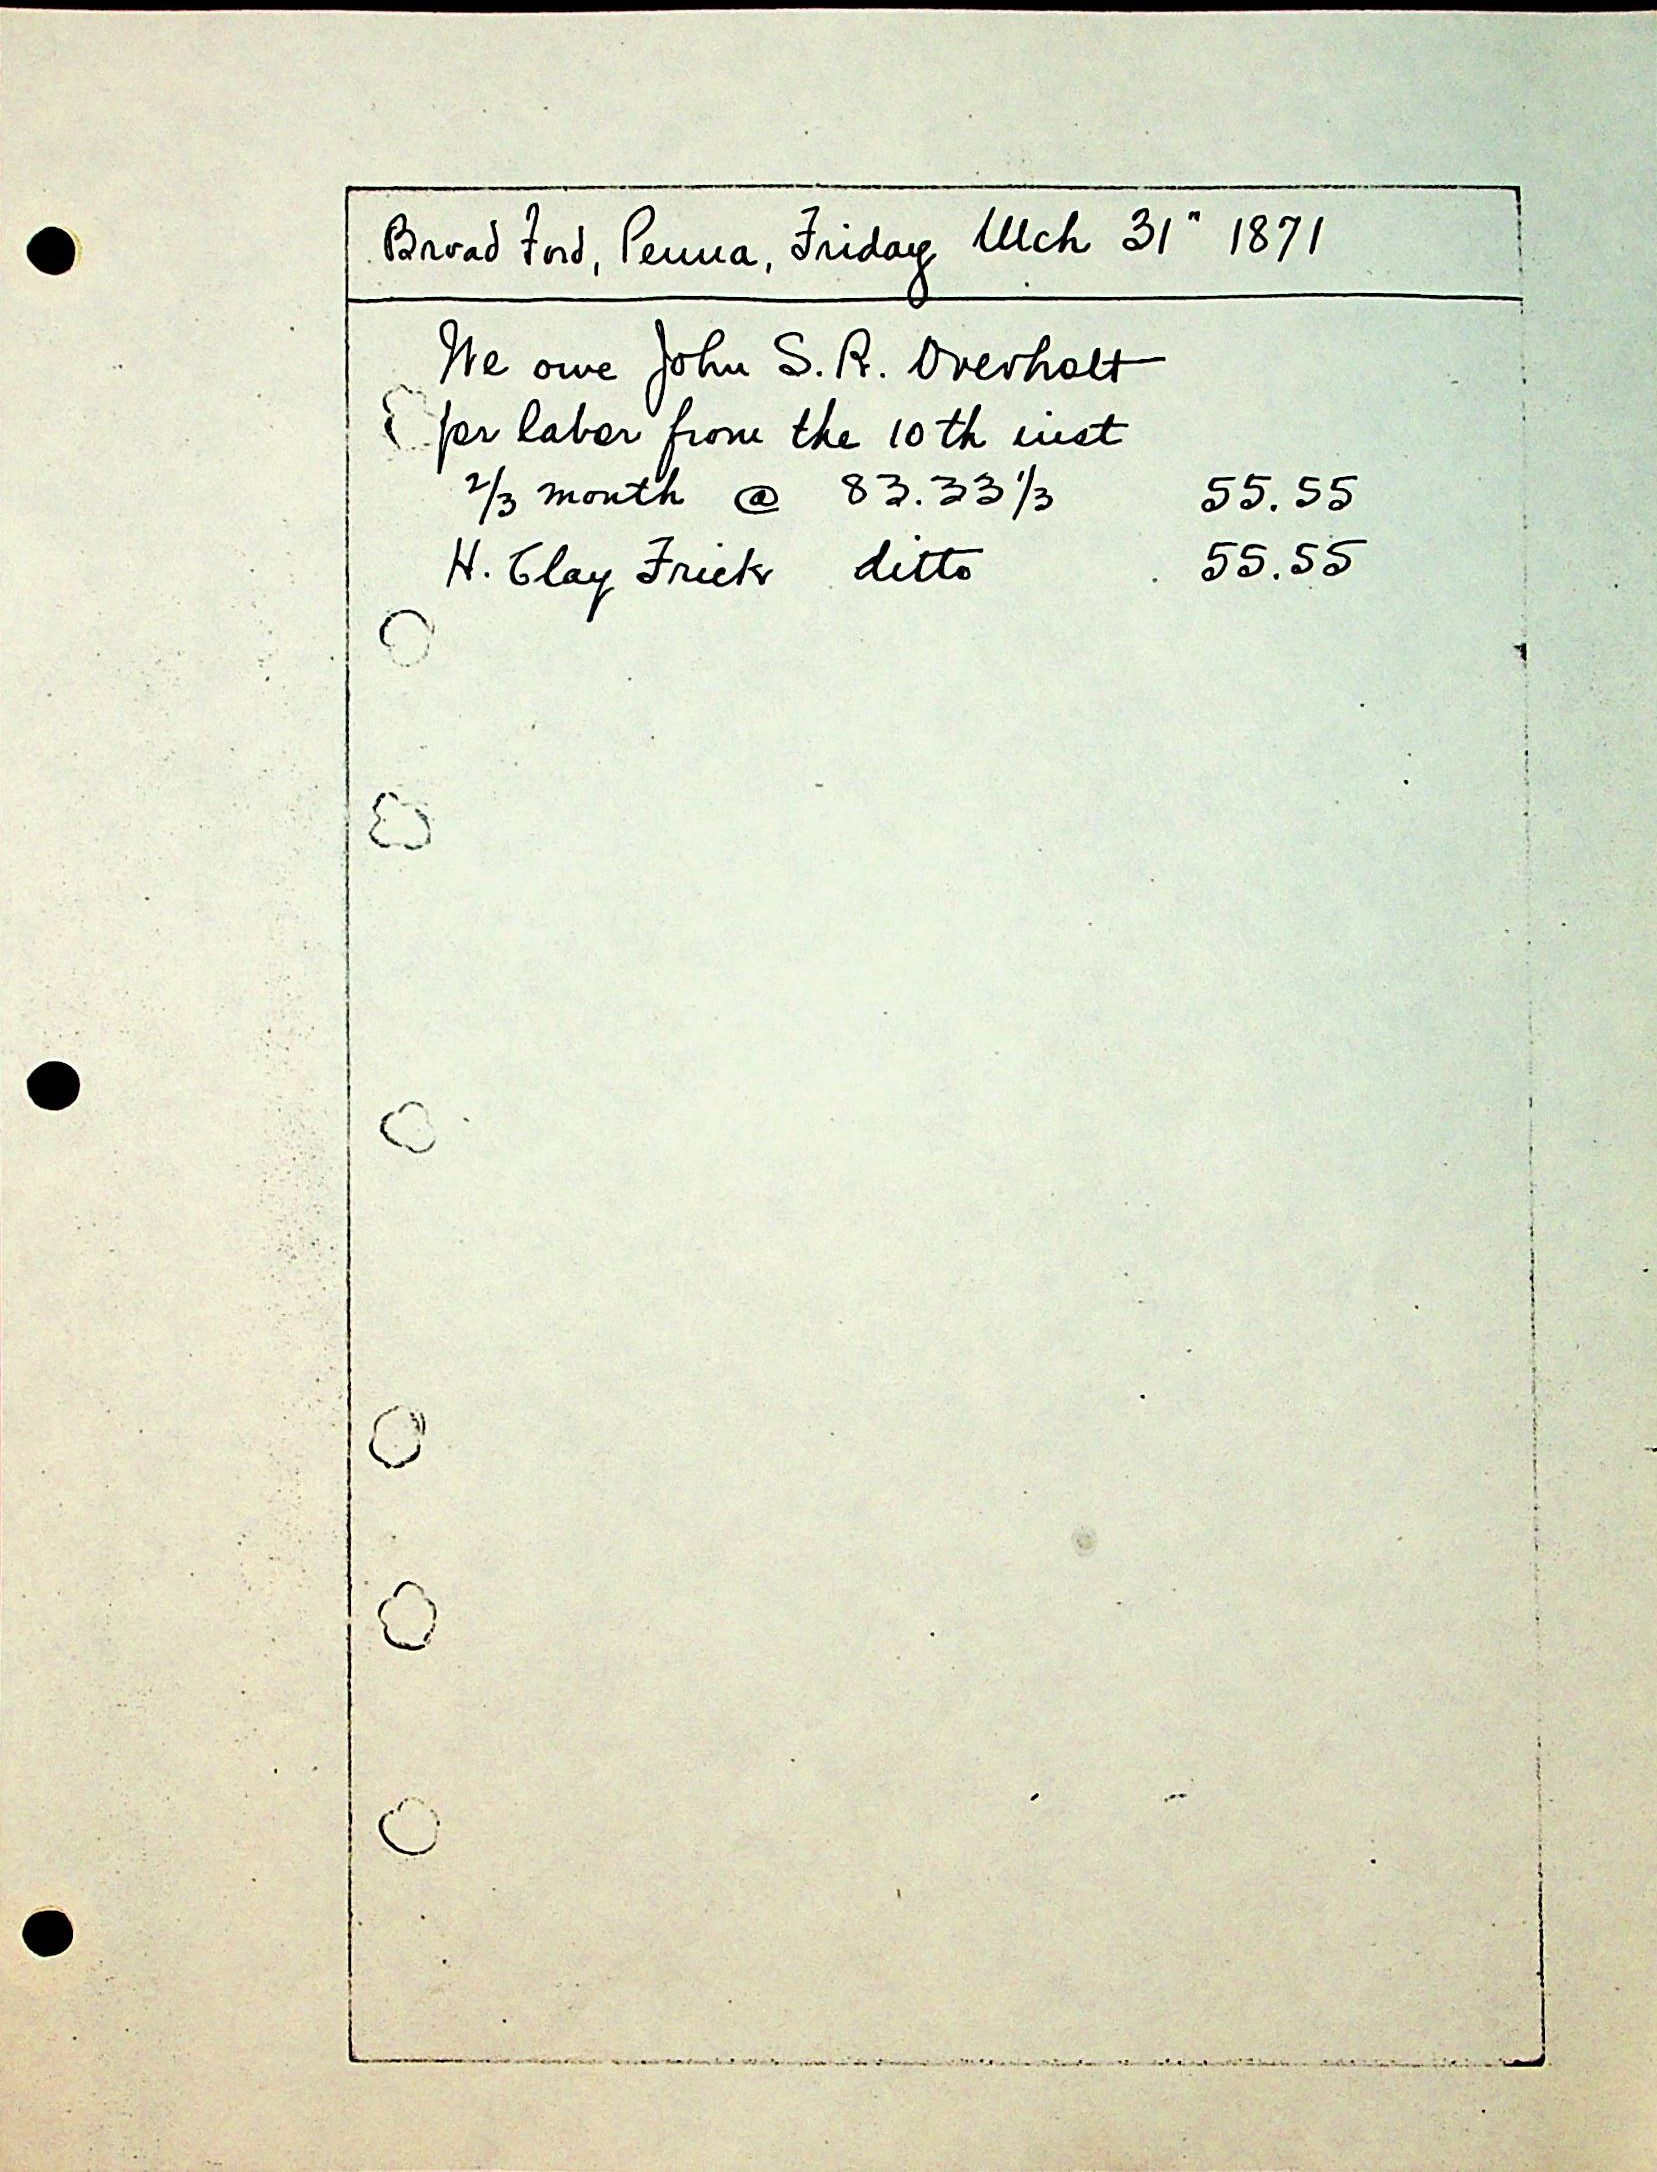 Broad Ford, Penna, Friday Mch 31" 1871
We owe John S. R. Overholt
for labor from the 10th inst
2/3 month @ 83.33 1/3 55.55
H. Clay Frick ditto 55.55